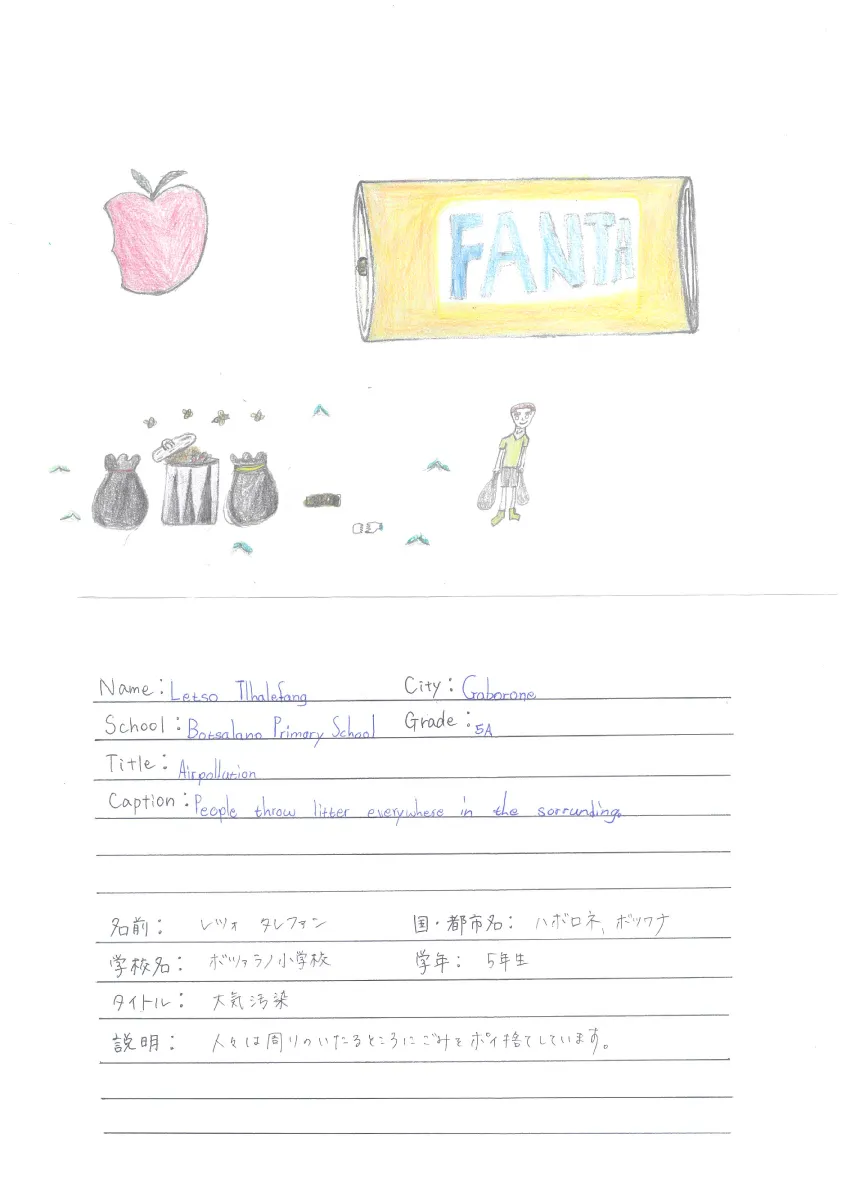 FANTA
Name: Letso Tlhalefang City: Gaborone
School: Botsalano Primary School Grade: 5A
Title: Airpollution
Caption: People throw litter everywhere in the sorrunding.
名前: レツォ タレファン 国・都市名: ハボロネ、ボツワナ
学校名: ボツァラノ小学校 学年: 5年生
タイトル: 大気汚染
説明: 人々は周りのいたるところにごみをポイ捨てしています。